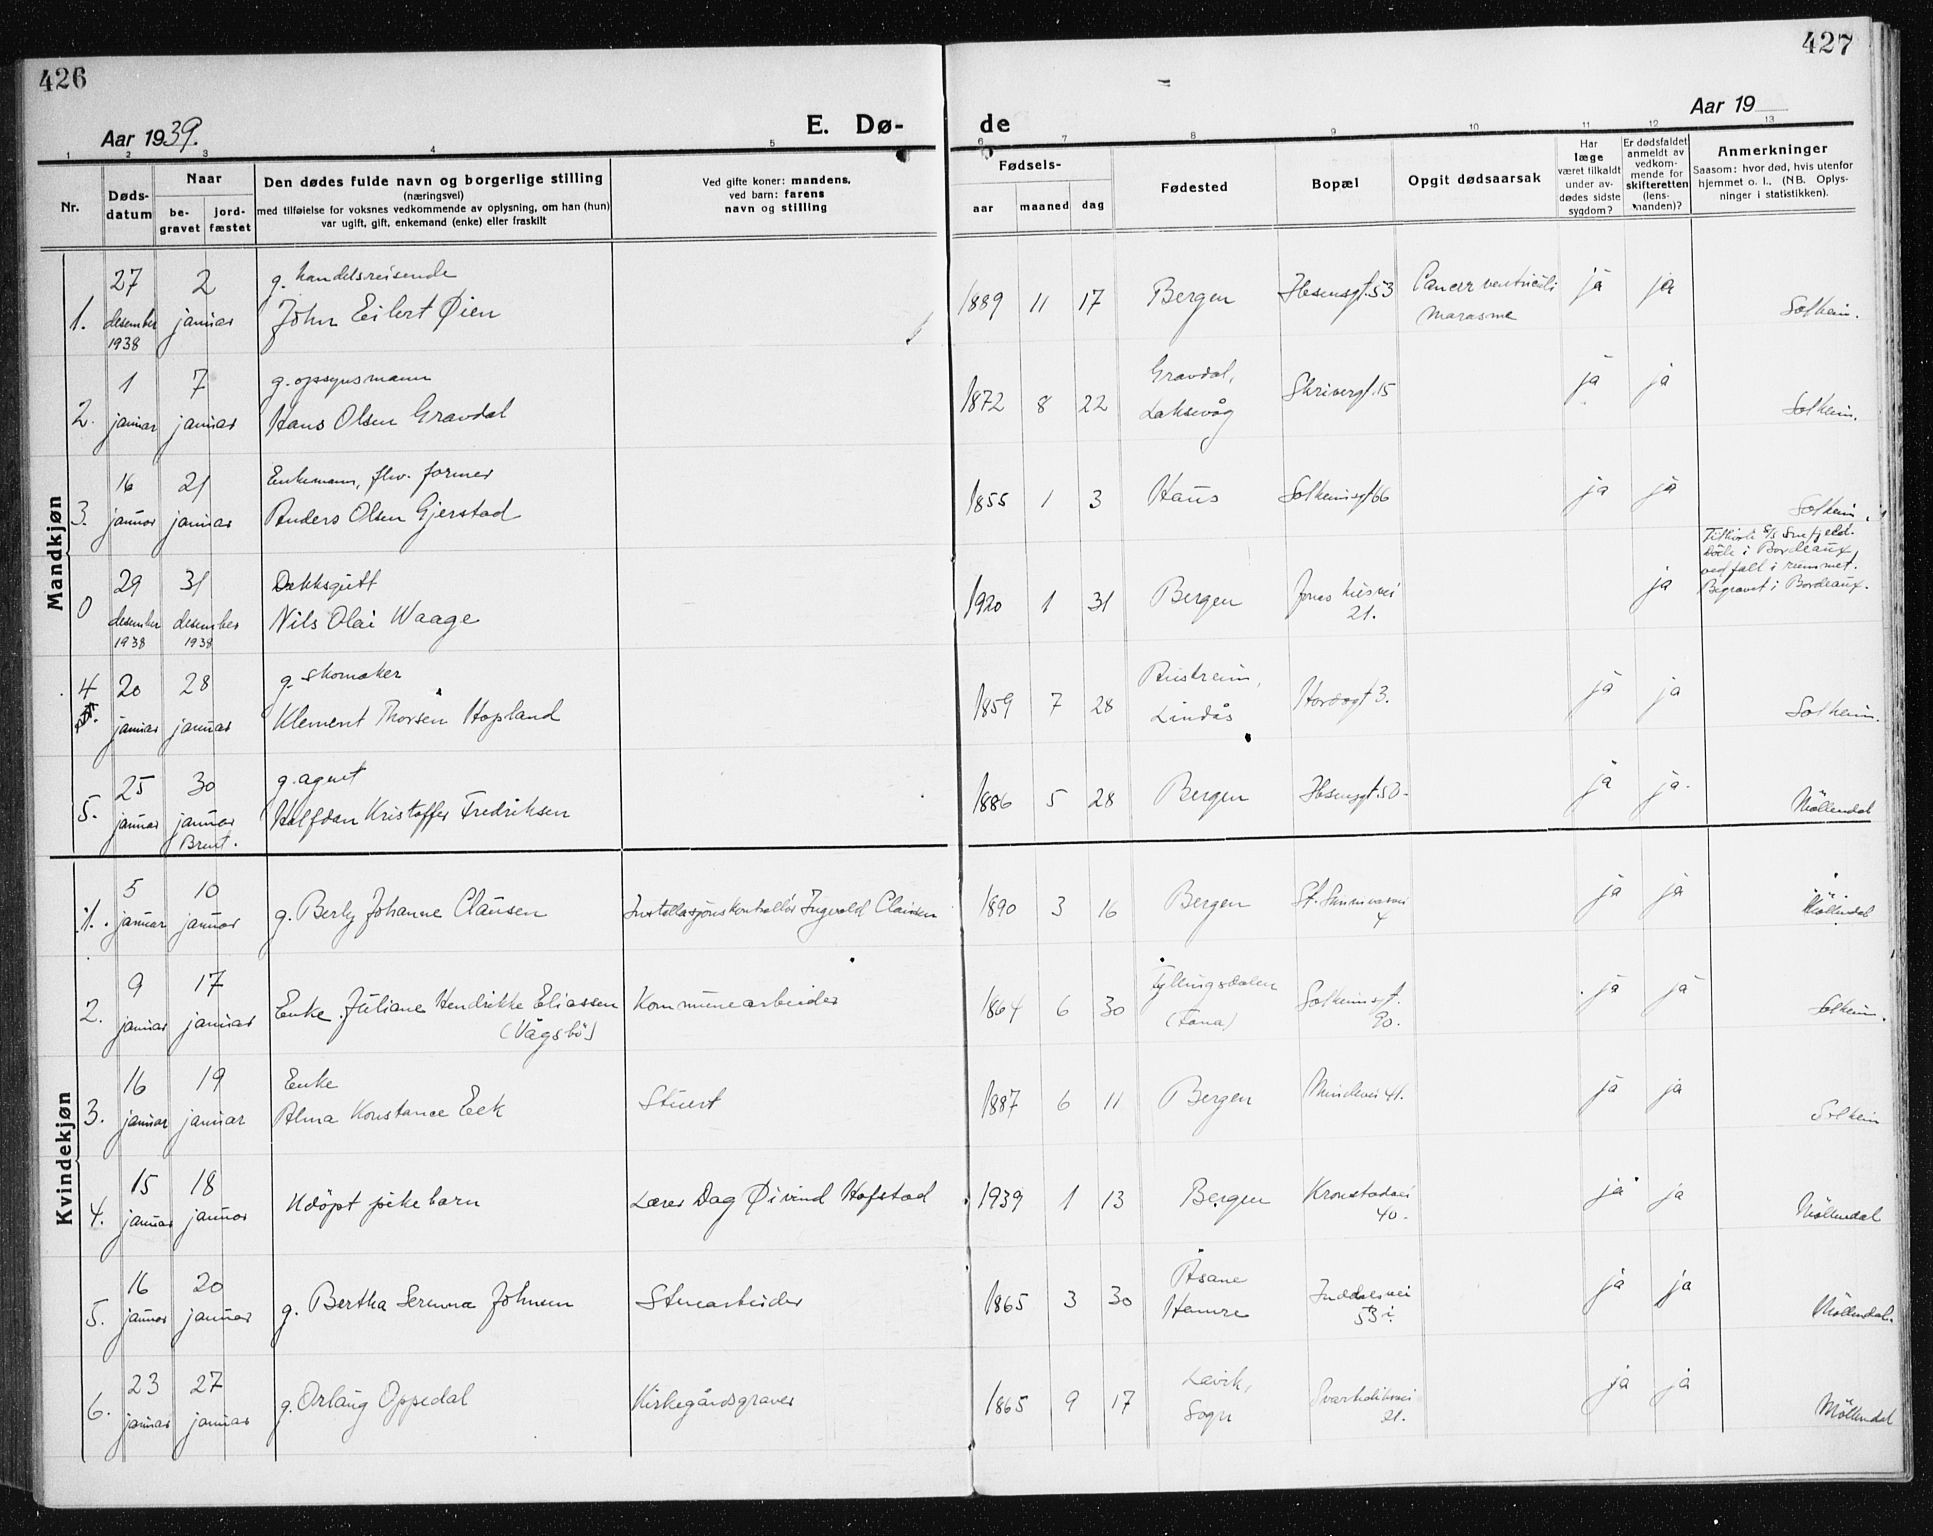 426
427
Aar 1939.
E. Dø-
de
Aar 19
1 2 3 4 5 6 7 8 9 10 11 12 13
Nr.
Døds-
datum
Naar
be-
gravet
jord-
fæstet
Den dødes fulde navn og borgerlige stilling
(næringsvei)
med tilføielse for voksnes vedkommende av oplysning, om han (hun)
var ugift, gift, enkemand (enke) eller fraskilt
Ved gifte koner: mandens,
ved barn: farens
navn og stilling
Fødsels-
aar maaned dag
Fødested
Bopæl
Opgit dødsaarsak
Har
læge
været tilkaldt
under av-
dødes sidste
sygdom?
Er dødsfaldet
anmeldt av
vedkom-
mende for
skifteretten
(lens-
manden)?
Anmerkninger
Saasom: hvor død, hvis utenfor
hjemmet o. l., (NB. Oplys-
ninger i statistikken).
Mandkjøn
27 2 g. handelsreisende
1. desember januar John Eilert Øien 1889 11 17 Bergen Ibsensgt. 53 Cancer ventriculi ja ja
1938 marasme Solheim.
1 7 g. opsynsmann Gravdal,
2. januar januar Hans Olsen Gravdal 1872 8 22 Laksevåg Skrivergt. 15 ja ja Solheim.
16 21 Enkemann, fhv. former
3. januar januar Anders Olsen Gjerstad 1855 1 3 Haus Solheimsgt 66 ja ja Solheim.
29 31 Dekksgutt
0 desember desember Nils Olai Waage 1920 1 31 Bergen Jonas Liesvei ja
1938 1938 21.
Tilhørte S/S Snefjeld.
Døde i Bordeaux,
ved fall i rummet.
Begravet i Bordeaux.
4 20 28 g. skomaker Austreim,
januar januar Klement Thorsen Hopland 1859 7 28 Lindås Hordagt 3. ja ja Solheim.
25 30 g. agent
5. januar januar Halfdan Kristoffer Fredriksen 1886 5 28 Bergen Ibsensgt. 50. ja ja. Møllendal
Brent.
Kvindekjøn
5 10
1. januar januar g. Berly Johanne Clausen Installasjonskontrollør Ingvald Clausen 1890 3 16 Bergen ja ja Møllendal
4
9 17
2. januar januar Enke Juliane Hendrikke Eliassen Kommunearbeider 1864 6 30 Fyllingsdalen Solheimsgt. ja ja Solheim.
(Vågsbø) (Fana) 90.
16 19 Enke
3. januar januar Alma Konstance Eek Stuert 1887 6 11 Bergen Mindevei 41. ja ja Solheim
15 18
4. januar januar Udøpt pikebarn Lærer Dag Øivind Hofstad 1939 1 13 Bergen Kronstadvei ja ja Møllendal
40.
16 20 Åsane
5. januar januar g. Bertha Serinna Johnsen Stuearbeider 1865 3 30 Hamre Inddalsvei ja ja Møllendal.
53 i.
23 27 Lavik,
6. januar januar g. Orlaug Oppedal Kirkegårdsgraver 1865 9 17 Sogn Svartediksvei ja ja Møllendal
21.